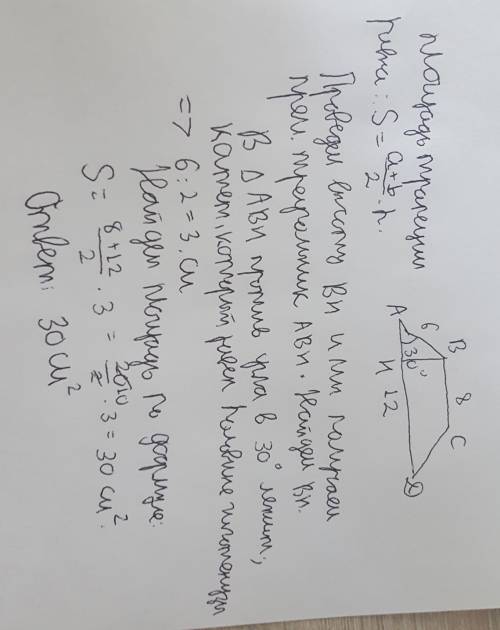 Площадь трапеции
равна: S = a+b/2 · h.
A 6 B 8 C
30°
H 12
D
Проведём высоту BH и мы получаем
прям. треугольник ABH. Найдём BH.
В △ ABH против угла в 30° лежит
катет, который равен половине гипотенузы
=> 6:2 = 3 см
Найдём площадь по формуле:
S = 8+12/2 · 3 = 20/2 · 3 = 30 см².
Ответ: 30 см²